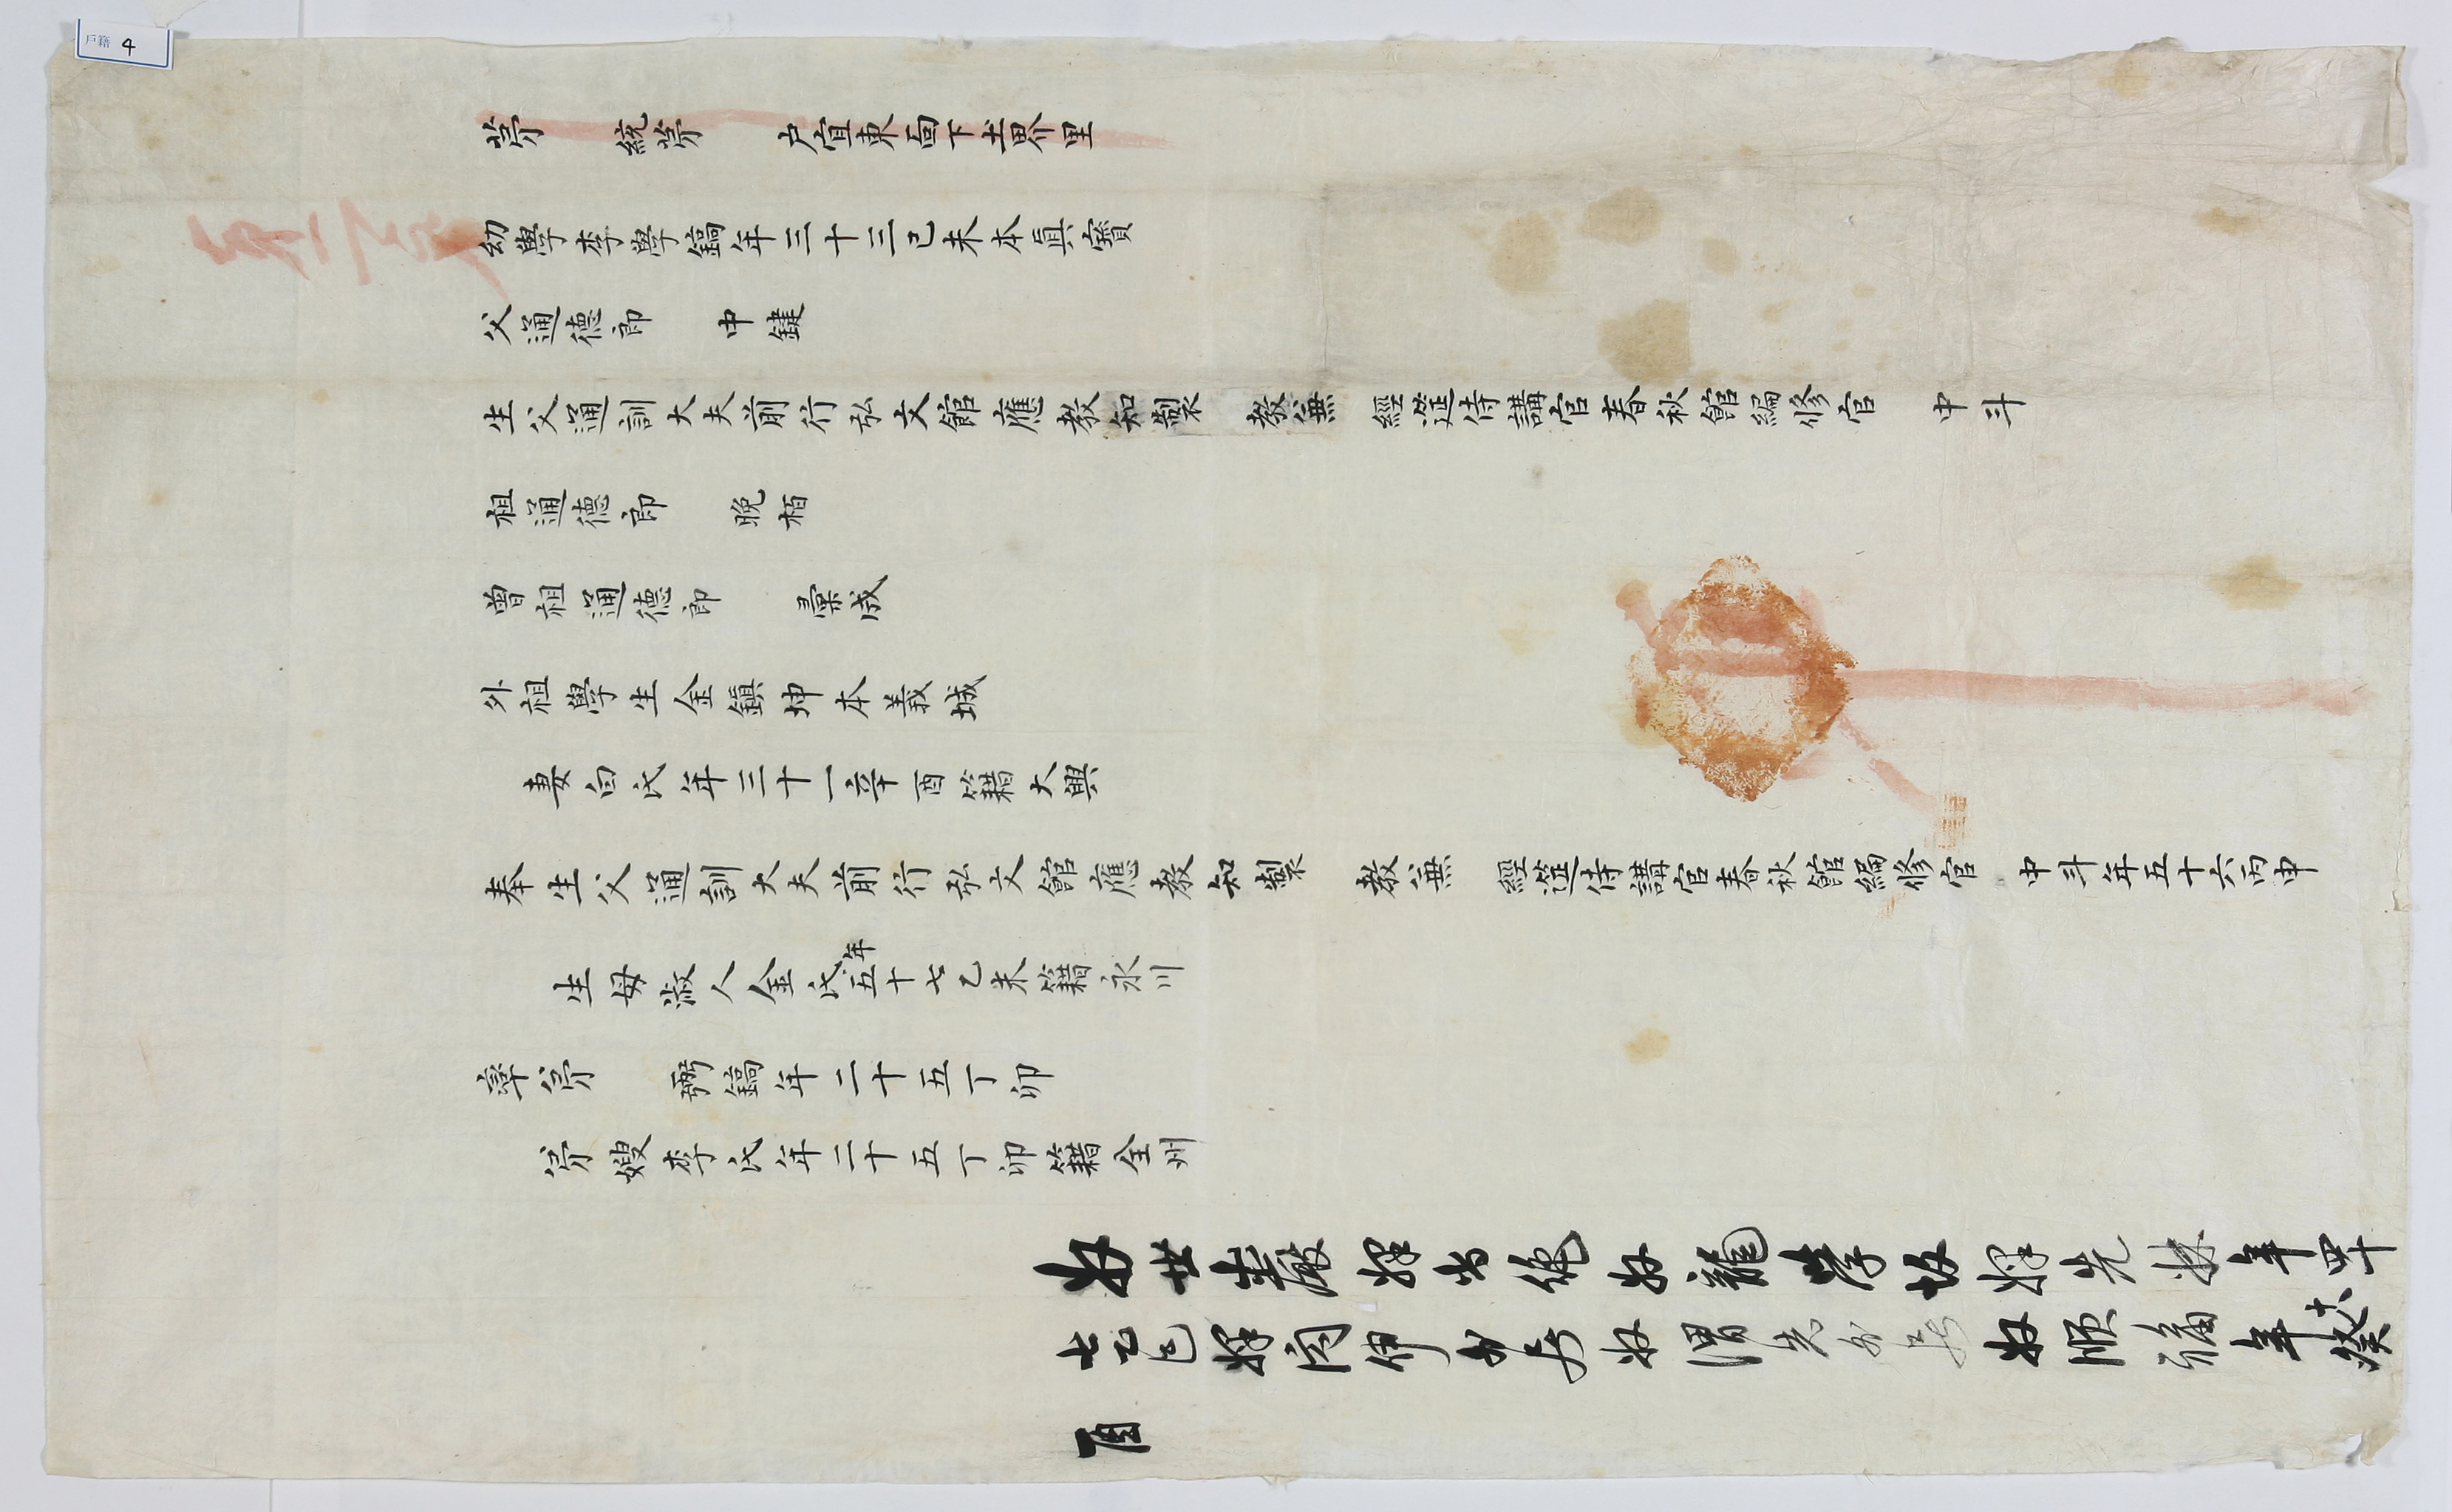 戶籍 4
第 統第 戶宜東面下土界里
幼學李學鎬年三十三己未本眞寶
父通德郎 中鍵
生父通訓大夫前行弘文館應敎知製 敎兼 經筵侍講官春秋館編修官 中斗
祖通德郎 晩栢
曾祖通德郎 彙成
外祖學生金鎭坤本義城
妻白氏年三十一辛酉籍大興
奉生父通訓大夫前行弘文館應敎知製 敎兼 經筵侍講官春秋館編修官 中斗年五十六丙申
生母淑人金氏年五十七乙未籍永川
率弟 弼鎬年二十五丁卯
弟嫂李氏年二十五丁卯籍全州
奴世巖婢 奴龍 故婢先 年四十
七乙巳婢 伊 奴 奴順福年 癸
酉